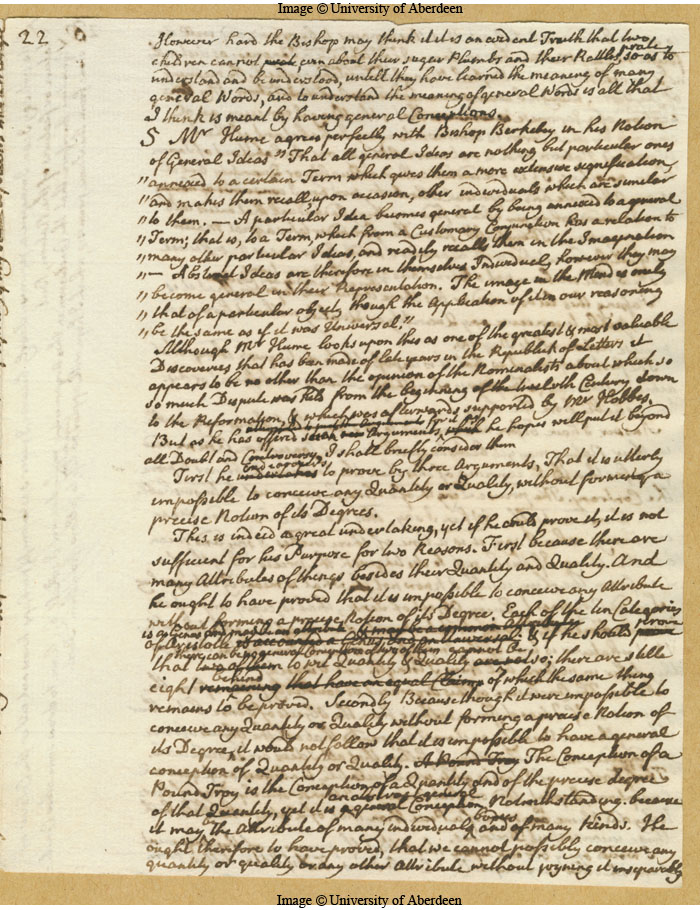 Image © University of Aberdeen
22
However hard the Bishop may think it it is an evident Truth that two
children cannot prate even about their sugar Plumbs and their Rattles, so as to
understand and be understood, untill they have learned the meaning of many
general Words, and to understand the meaning of general Words is all that
I think is meant by having general Conceptions.
5 Mr Hume agrees perfectly with Bishop Berkeley in his Notion
of General Ideas " That all general Ideas are nothing but particular ones
" annexed to a certain Term which gives them a more extensive signification,
" and makes them recall upon occasion, other individuals which are similar
" to them. — A particular Idea becomes general by being annexed to a general
" Term; that is, to a Term, which from a Customary Conjunction has a relation to
" many other particular Ideas, and readily recalls them in the Imagination
" — Abstract Ideas are therefore in themselves Individual, however they may
" become general in their Representation. The image in the Mind is only
" that of a particular object, though the Application of it in our reasoning
" be the same as if it was Universal."
Although Mr Hume looks upon this as one of the greatest & most valuable
Discoveries that has been made of late years in the Republick of Letters it
appears to be no other than the opinion of the Nominalists about which so
so much Dispute was held from the beginning of the twelvth Century down
to the Reformation, & which was afterwards supported by Mr Hobbes.
But as he has offered Arguments, he hopes will put it beyond
all Doubt and Controversy, I shall briefly consider them
First he endeavours to prove by three Arguments, That it is utterly
impossible to conceive any Quantity or Quality, without forming a
precise Notion of its Degrees.
This is indeed a great undertaking, yet if he could prove it, it is not
sufficient for his Purpose for two Reasons. First because there are
many Attributes of things besides their Quantity and Quality. And
he ought to have proved that it is impossible to conceive any Attribute
without forming a precise Notion of its Degree. Each of the ten Categories
of Aristotle is a Genus and & if he should prove
that there can be no general Conception of two of them to wit Quantity & Quality so; there are still
eight behind of which the same thing
remains to be proved. Secondly Because though it were impossible to
conceive any Quantity or Quality without forming a precise Notion of
its Degree, it would not follow that it is impossible to have a general
conception of Quantity or Quality. The Conception of a
Pound Troy is the Conception of a Quantity and of the precise degree
of that Quantity, yet it is an abstract general Conception Notwithstanding. because
it may be the Attribute of many individual bodies and of many Kinds. He
ought therefore to have proved, that we cannot possibly conceive any
quantity or quality or any other Attribute without joyning it inseparably
Image © University of Aberdeen